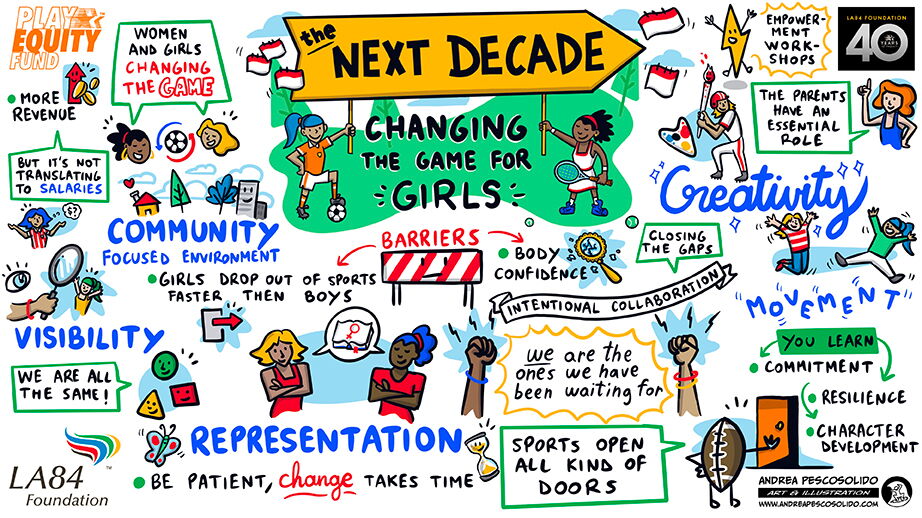 PLAY
EQUITY
FUND
WOMEN
AND GIRLS
CHANGING
THE GAME
MORE
REVENUE
BUT IT'S NOT
TRANSLATING
TO SALARIES
the
NEXT DECADE
CHANGING
THE GAME FOR
GIRLS
EMPOWER-
MENT
WORK-
SHOPS
LA84 FOUNDATION
40
YEARS
THE PARENTS
HAVE AN
ESSENTIAL
ROLE
Creativity
COMMUNITY
FOCUSED ENVIRONMENT
BARRIERS
GIRLS DROP OUT OF SPORTS
FASTER THEN BOYS
BODY
CONFIDENCE
CLOSING
THE GAPS
INTENTIONAL COLLABORATION
"MOVEMENT"
VISIBILITY
WE ARE ALL
THE SAME!
we are the
ones we have
been waiting for
YOU LEARN
COMMITMENT
RESILIENCE
CHARACTER
DEVELOPMENT
REPRESENTATION
BE PATIENT, change TAKES TIME
SPORTS OPEN
ALL KIND OF
DOORS
LA84
Foundation
TM
ANDREA PESCOSOLIDO
ART & ILLUSTRATION
WWW.ANDREAPESCOSOLIDO.COM